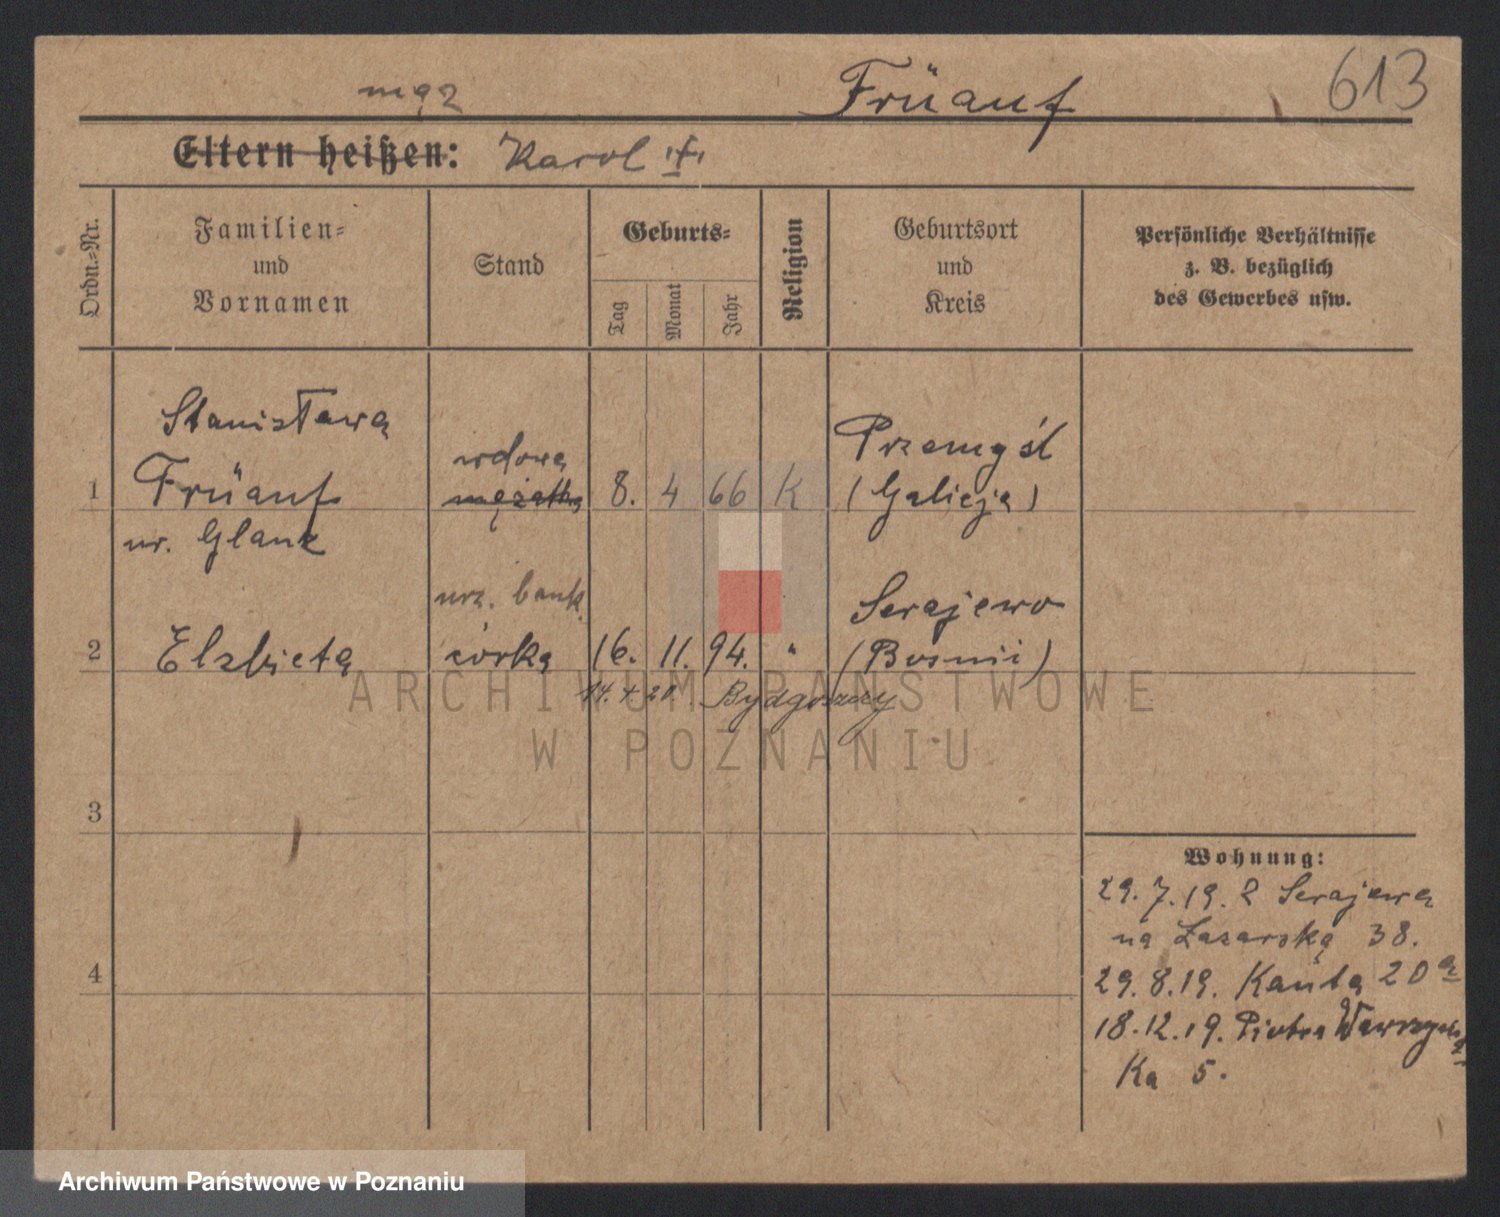 613
mąż
Früauf
Eltern heißen: Karol †
Ordn.-Nr.
Familien-
und
Vornamen
Stand
Geburts-
Tag
Monat
Jahr
Religion
Geburtsort
und
Kreis
Persönliche Verhältnisse
z. B. bezüglich
des Gewerbes usw.
Stanisława
1 Früauf wdowa mężatka 8. 4 66 K Przemyśl (Galicja)
ur. Glanz
urz. bank.
2 Elzbieta córka 16. 11. 94. " Serajewo (Bosnii)
14. 4 20. Bydgoszczy
3
4
Wohnung:
29.7.19. z Serajewa
na Łazarską 38.
29.8.19. Kanta 20a
18.12.19. Piotra Wawrzynia
Ka 5.
ARCHIWUM PAŃSTWOWE
W POZNANIU
Archiwum Państwowe w Poznaniu